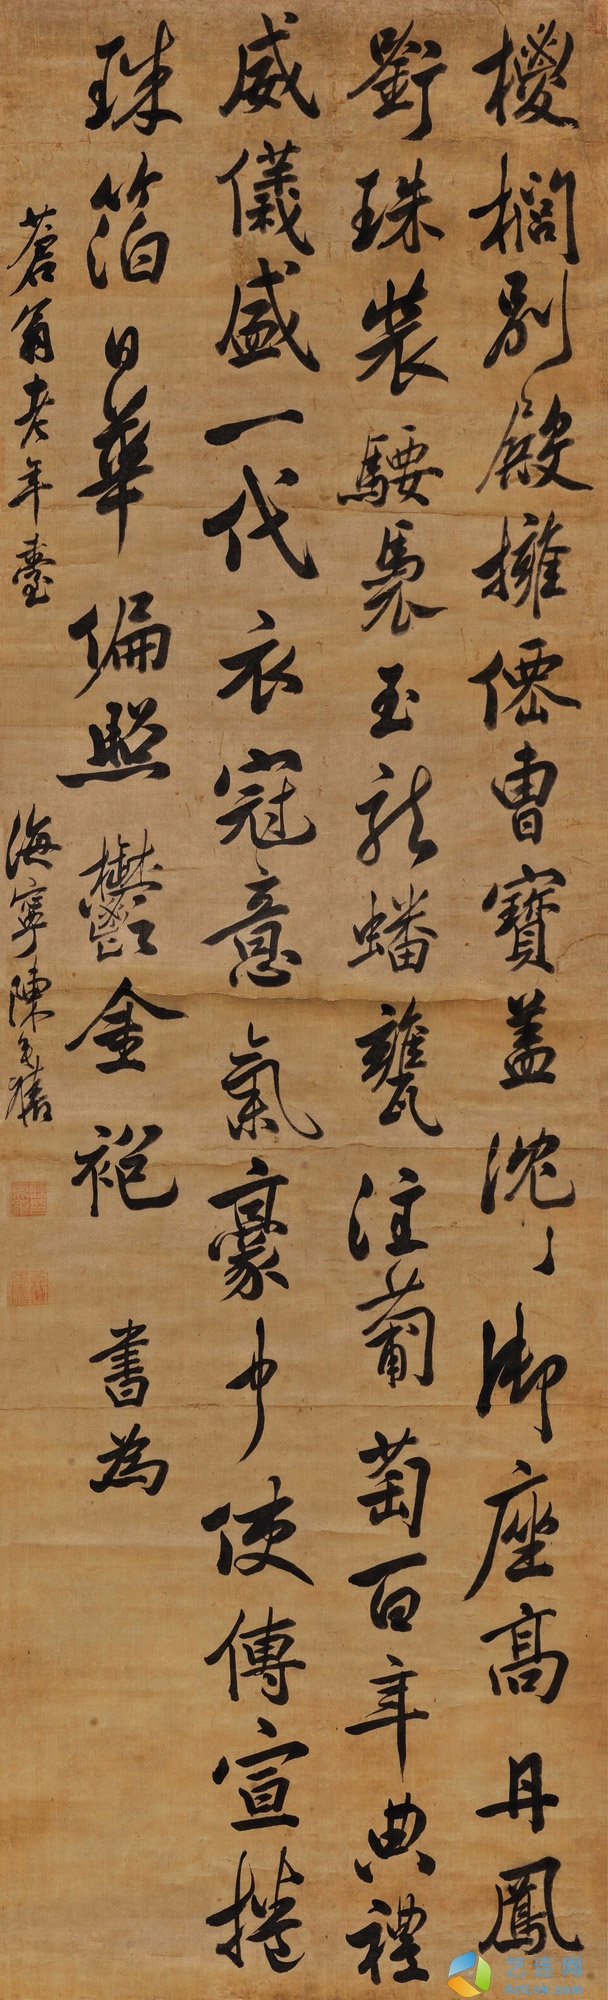 椶櫚別殿擁僊曹寶蓋沈〻御座高丹鳳
銜珠裝騕褭玉龍蟠甕注葡萄百年典禮
威儀盛一代衣冠意氣豪中使傳宣捲
珠箔日華偏照鬱金袍 書為
蒼翁老年臺 海寧陳奕禧